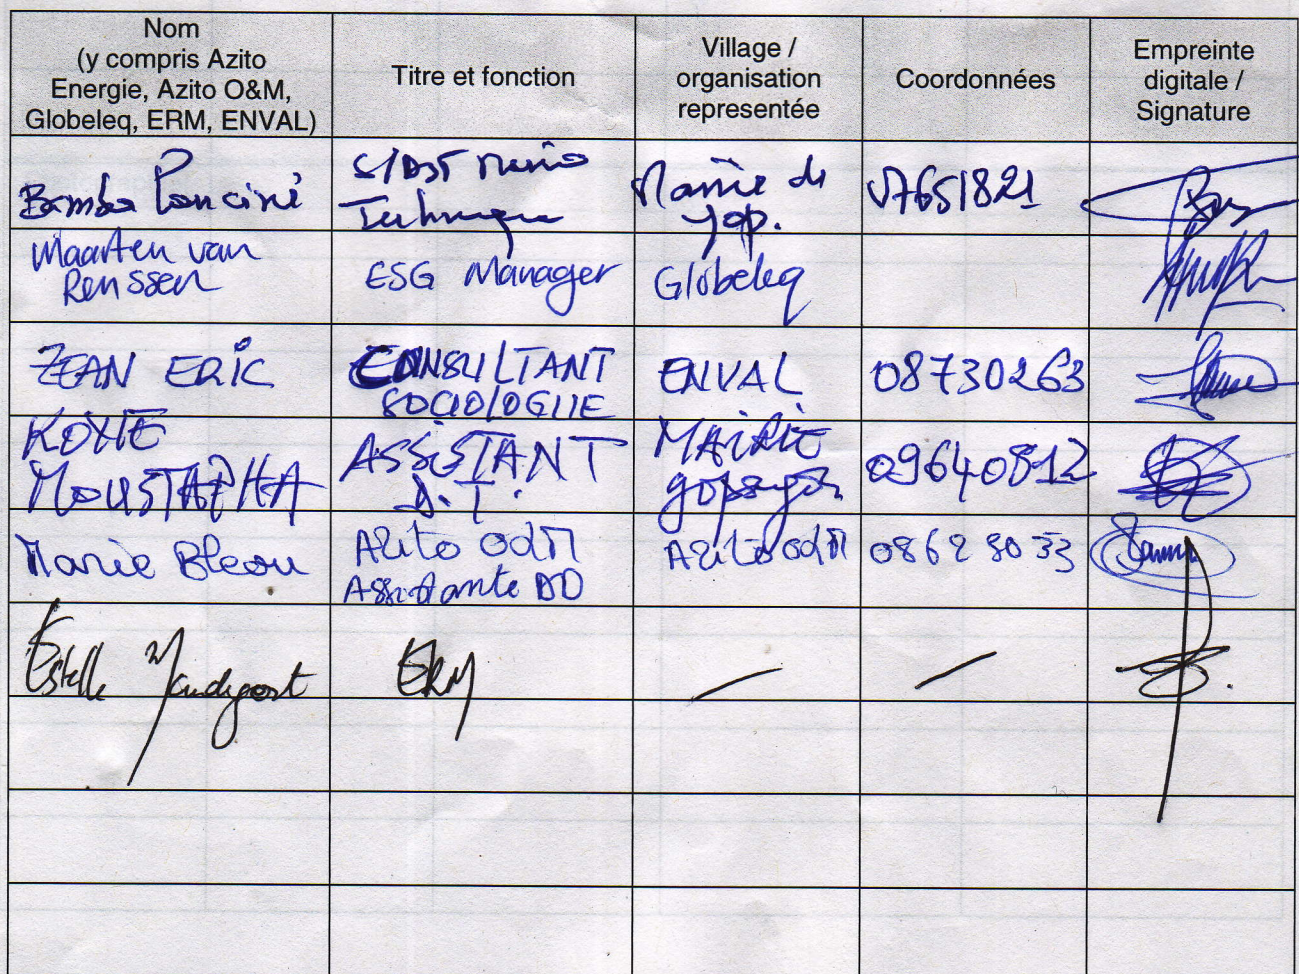 Nom
(y compris Azito
Energie, Azito O&M,
Globeleq, ERM, ENVAL)
Titre et fonction
Village /
organisation
representée
Coordonnées
Empreinte
digitale /
Signature
Bamba
Technique
Mairie de
Yop.
07651821
Maarten van
Renssen
ESG Manager
Globeleq
ZEAN ERIC
CONSULTANT
SOCIOLOGUE
ENVAL
08730263
KONE
MOUSTAPHA
ASSISTANT
D.T.
MAIRIE
09640812
Marie Bleou
Azito O&M
Assistante DD
Azito O&M
08 62 80 33
Estelle
ERM